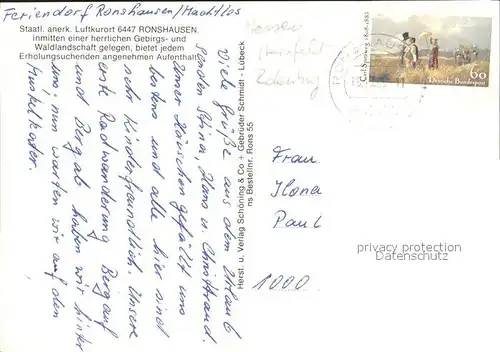 Feriendorf Ronshausen/Machtlos
Staatl. anerk. Luftkurort 6447 RONSHAUSEN,
inmitten einer herrlichen Gebirgs- und
Waldlandschaft gelegen, bietet jedem
Erholungsuchenden angenehmen Aufenthalt
Viele Grüße aus dem Urlaub
senden Stina, Hans u. Christrand.
Unser Häuschen gefällt uns
bestens und alle hier sind
sehr kinderfreundlich. Unsere
erste Radwanderung Bergauf
und Bergab haben wir hinter
uns, nun warten wir auf den
Muskelkater.
Herst. u. Verlag Schöning & Co + Gebrüder Schmidt - Lübeck
Bestellnr. Rons 55
Hessen
Hersfeld
Rotenburg
Carl Spitzweg 1808-1885
60
Deutsche Bundespost
Frau
Ilona
Paul
1000
privacy protection
Datenschutz